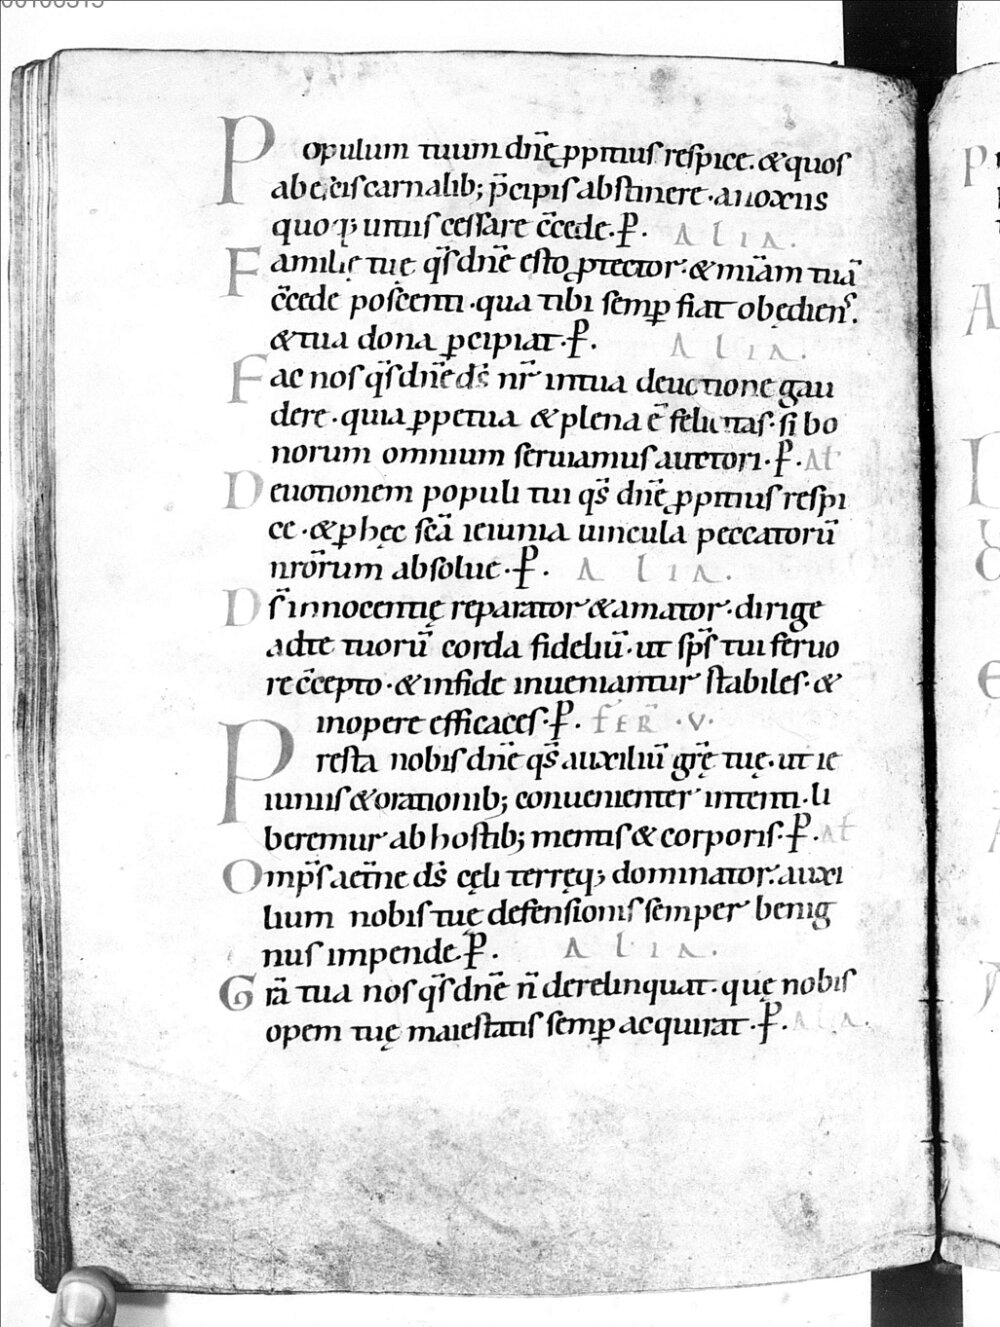 Populum tuum dn̄ę ꝓpitius respice. & quos
ab ęscis carnalib; p̄cipis abstinere · a noxiis
quoq; uitiis cessare c̄cede · ꝑ · ALIA ·
Familię tuę q̄s dn̄e esto ꝓtector · & mīam tuā
c̄cede poscenti · qua tibi semꝑ fiat obędiens̄ ·
& tua dona ꝑcipiat · ꝑ · ALIA ·
Fac nos q̄s dn̄e ds̄ nr̄ in tua deuotione gau
dere · quia ꝑpetua & plena ē felicitas · si bo
norum omnium seruiamus auctori · ꝑ · Al̄
Deuotionem populi tui q̄s dn̄ę ꝓpitius respi
ce · & ꝑ hęc sc̄a ieiunia uincula peccatorū
nrōrum absolue · ꝑ · ALIA ·
Ds̄ innocentię reparator & amator · dirige
ad te tuorū corda fideliū · ut sp̄s tui feruo
re c̄cepto · & in fide inueniantur stabiles · &
in opere efficaces · ꝑ · FER̄ · V ·
Presta nobis dn̄e q̄s auxiliū gr̄ę tuę · ut ie
iuniis & orationib; conuenienter intenti · li
beremur ab hostib; mentis & corporis · ꝑ · Al̄
Omp̄s aet̄ne ds̄ cęli terręq; dominator · auxi
lium nobis tuę defensionis semper benig
nus impende · ꝑ · ALIA ·
Gr̄a tua nos q̄s dn̄e n̄ derelinquat · quę nobis
opem tuę maiestatis semꝑ acquirat · ꝑ · ALA ·